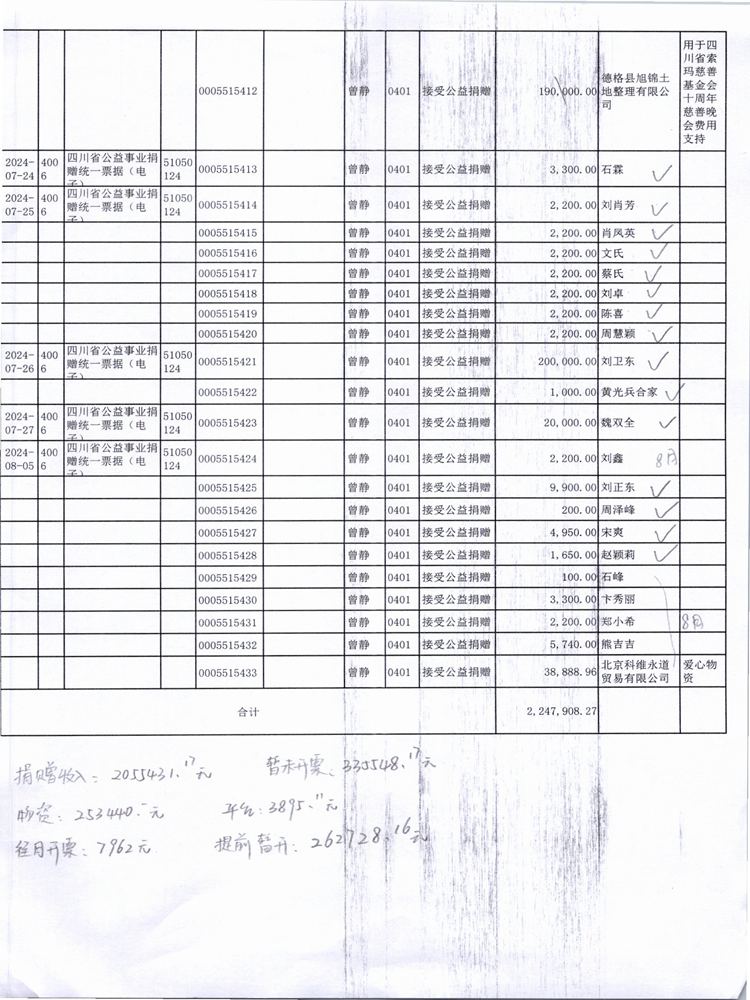 0005515412 曾静 0401 接受公益捐赠 190,000.00 德格县旭锦土地整理有限公司 用于四川省索玛慈善基金会十周年慈善晚会费用支持
2024-07-24 4006 四川省公益事业捐赠统一票据（电子） 51050124 0005515413 曾静 0401 接受公益捐赠 3,300.00 石霖 ✓
2024-07-25 4006 四川省公益事业捐赠统一票据（电子） 51050124 0005515414 曾静 0401 接受公益捐赠 2,200.00 刘肖芳 ✓
0005515415 曾静 0401 接受公益捐赠 2,200.00 肖凤英 ✓
0005515416 曾静 0401 接受公益捐赠 2,200.00 文氏 ✓
0005515417 曾静 0401 接受公益捐赠 2,200.00 蔡氏 ✓
0005515418 曾静 0401 接受公益捐赠 2,200.00 刘卓 ✓
0005515419 曾静 0401 接受公益捐赠 2,200.00 陈喜 ✓
0005515420 曾静 0401 接受公益捐赠 2,200.00 周慧颖 ✓
2024-07-26 4006 四川省公益事业捐赠统一票据（电子） 51050124 0005515421 曾静 0401 接受公益捐赠 200,000.00 刘卫东 ✓
0005515422 曾静 0401 接受公益捐赠 1,000.00 黄光兵合家 ✓
2024-07-27 4006 四川省公益事业捐赠统一票据（电子） 51050124 0005515423 曾静 0401 接受公益捐赠 20,000.00 魏双全 ✓
2024-08-05 4006 四川省公益事业捐赠统一票据（电子） 51050124 0005515424 曾静 0401 接受公益捐赠 2,200.00 刘鑫 8月
0005515425 曾静 0401 接受公益捐赠 9,900.00 刘正东 ✓
0005515426 曾静 0401 接受公益捐赠 200.00 周泽峰 ✓
0005515427 曾静 0401 接受公益捐赠 4,950.00 宋爽 ✓
0005515428 曾静 0401 接受公益捐赠 1,650.00 赵颖莉 ✓
0005515429 曾静 0401 接受公益捐赠 100.00 石峰
0005515430 曾静 0401 接受公益捐赠 3,300.00 卞秀丽
0005515431 曾静 0401 接受公益捐赠 2,200.00 郑小希 8月
0005515432 曾静 0401 接受公益捐赠 5,740.00 熊吉吉
0005515433 曾静 0401 接受公益捐赠 38,888.96 北京科维永道贸易有限公司 爱心物资
合计 2,247,908.27
捐赠收入: 2055431.17元 暂未开票: 335548.17元
物资: 253440.-元 平台: 3895.11元
径月开票: 7962元 提前暂开: 262728.16元